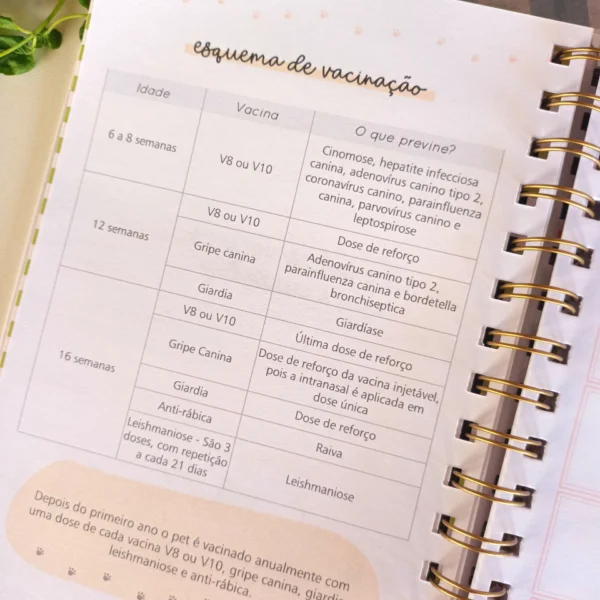 esquema de vacinação
Idade
Vacina
O que previne?
6 a 8 semanas
V8 ou V10
Cinomose, hepatite infecciosa
canina, adenovírus canino tipo 2,
coronavírus canino, parainfluenza
canina, parvovírus canino e
leptospirose
12 semanas
V8 ou V10
Dose de reforço
Gripe canina
Adenovírus canino tipo 2,
parainfluenza canina e bordetella
bronchiseptica
Giardia
Giardíase
16 semanas
V8 ou V10
Última dose de reforço
Gripe Canina
Dose de reforço da vacina injetável,
pois a intranasal é aplicada em
dose única
Giardia
Dose de reforço
Anti-rábica
Raiva
Leishmaniose - São 3
doses, com repetição
a cada 21 dias
Leishmaniose
Depois do primeiro ano o pet é vacinado anualmente com
uma dose de cada vacina V8 ou V10, gripe canina,
leishmaniose e anti-rábica.